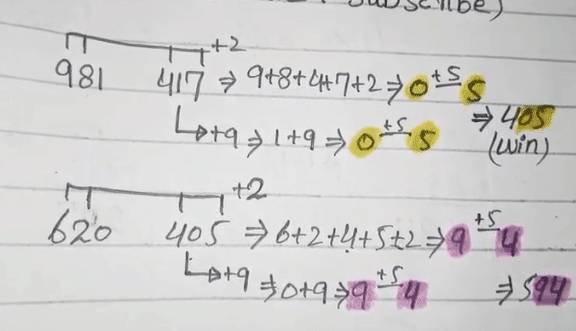 Subscribe)
+2
981 417 ⇒ 9+8+4+7+2 ⇒ 0 +5 5
↳ +9 ⇒ 1+9 ⇒ 0 +5 5 ⇒ 405
(win)
+2
620 405 ⇒ 6+2+4+5+2 ⇒ 9 +5 4
↳ +9 ⇒ 0+9 ⇒ 9 +5 4 ⇒ 594